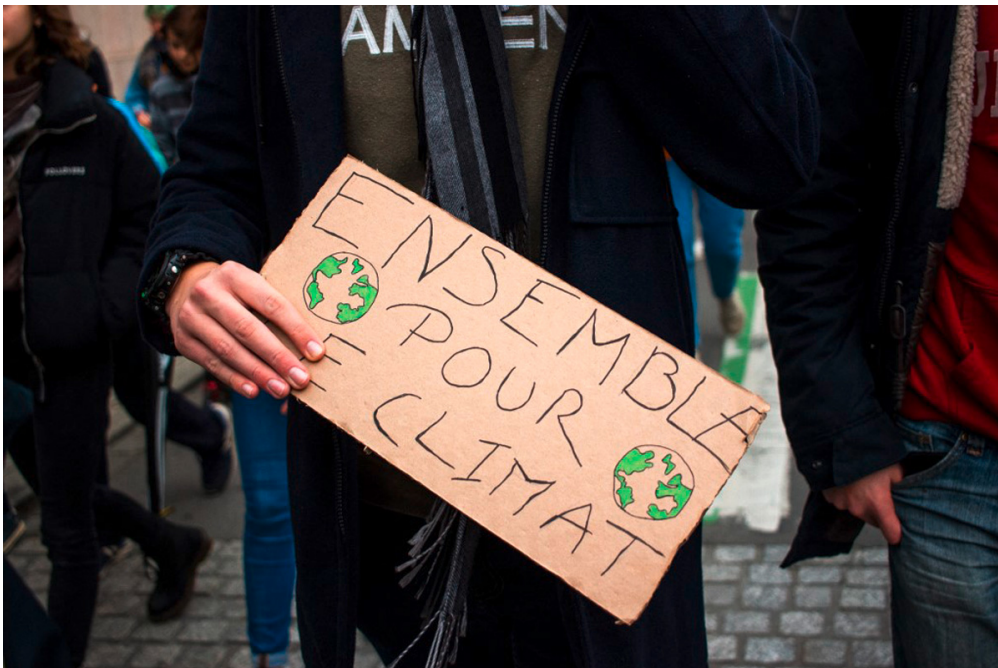 ENSEMBLA
POUR
E CLIMAT